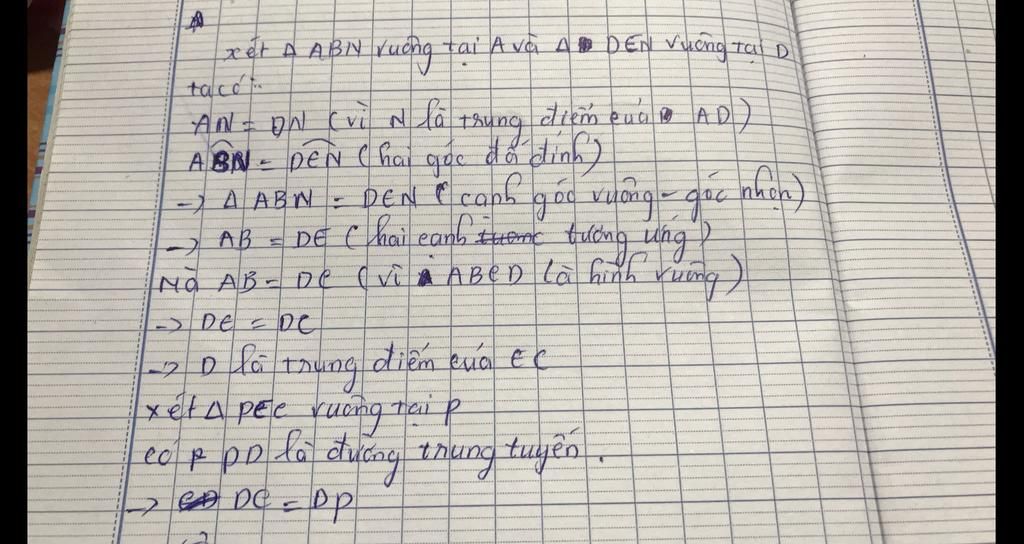 xét Δ ABN vuông tại A và Δ DEN vuông tại D
ta có:
AN = DN (vì N là trung điểm của AD)
ABN = DEN (hai góc đối đỉnh)
→ Δ ABN = DEN (cạnh góc vuông - góc nhọn)
→ AB = DE (hai cạnh tương ứng)
Mà AB = DC (vì ABCD là hình vuông)
→ DE = DC
→ D là trung điểm của EC
xét Δ PEC vuông tại P
có PD là đường trung tuyến.
→ DC = DP